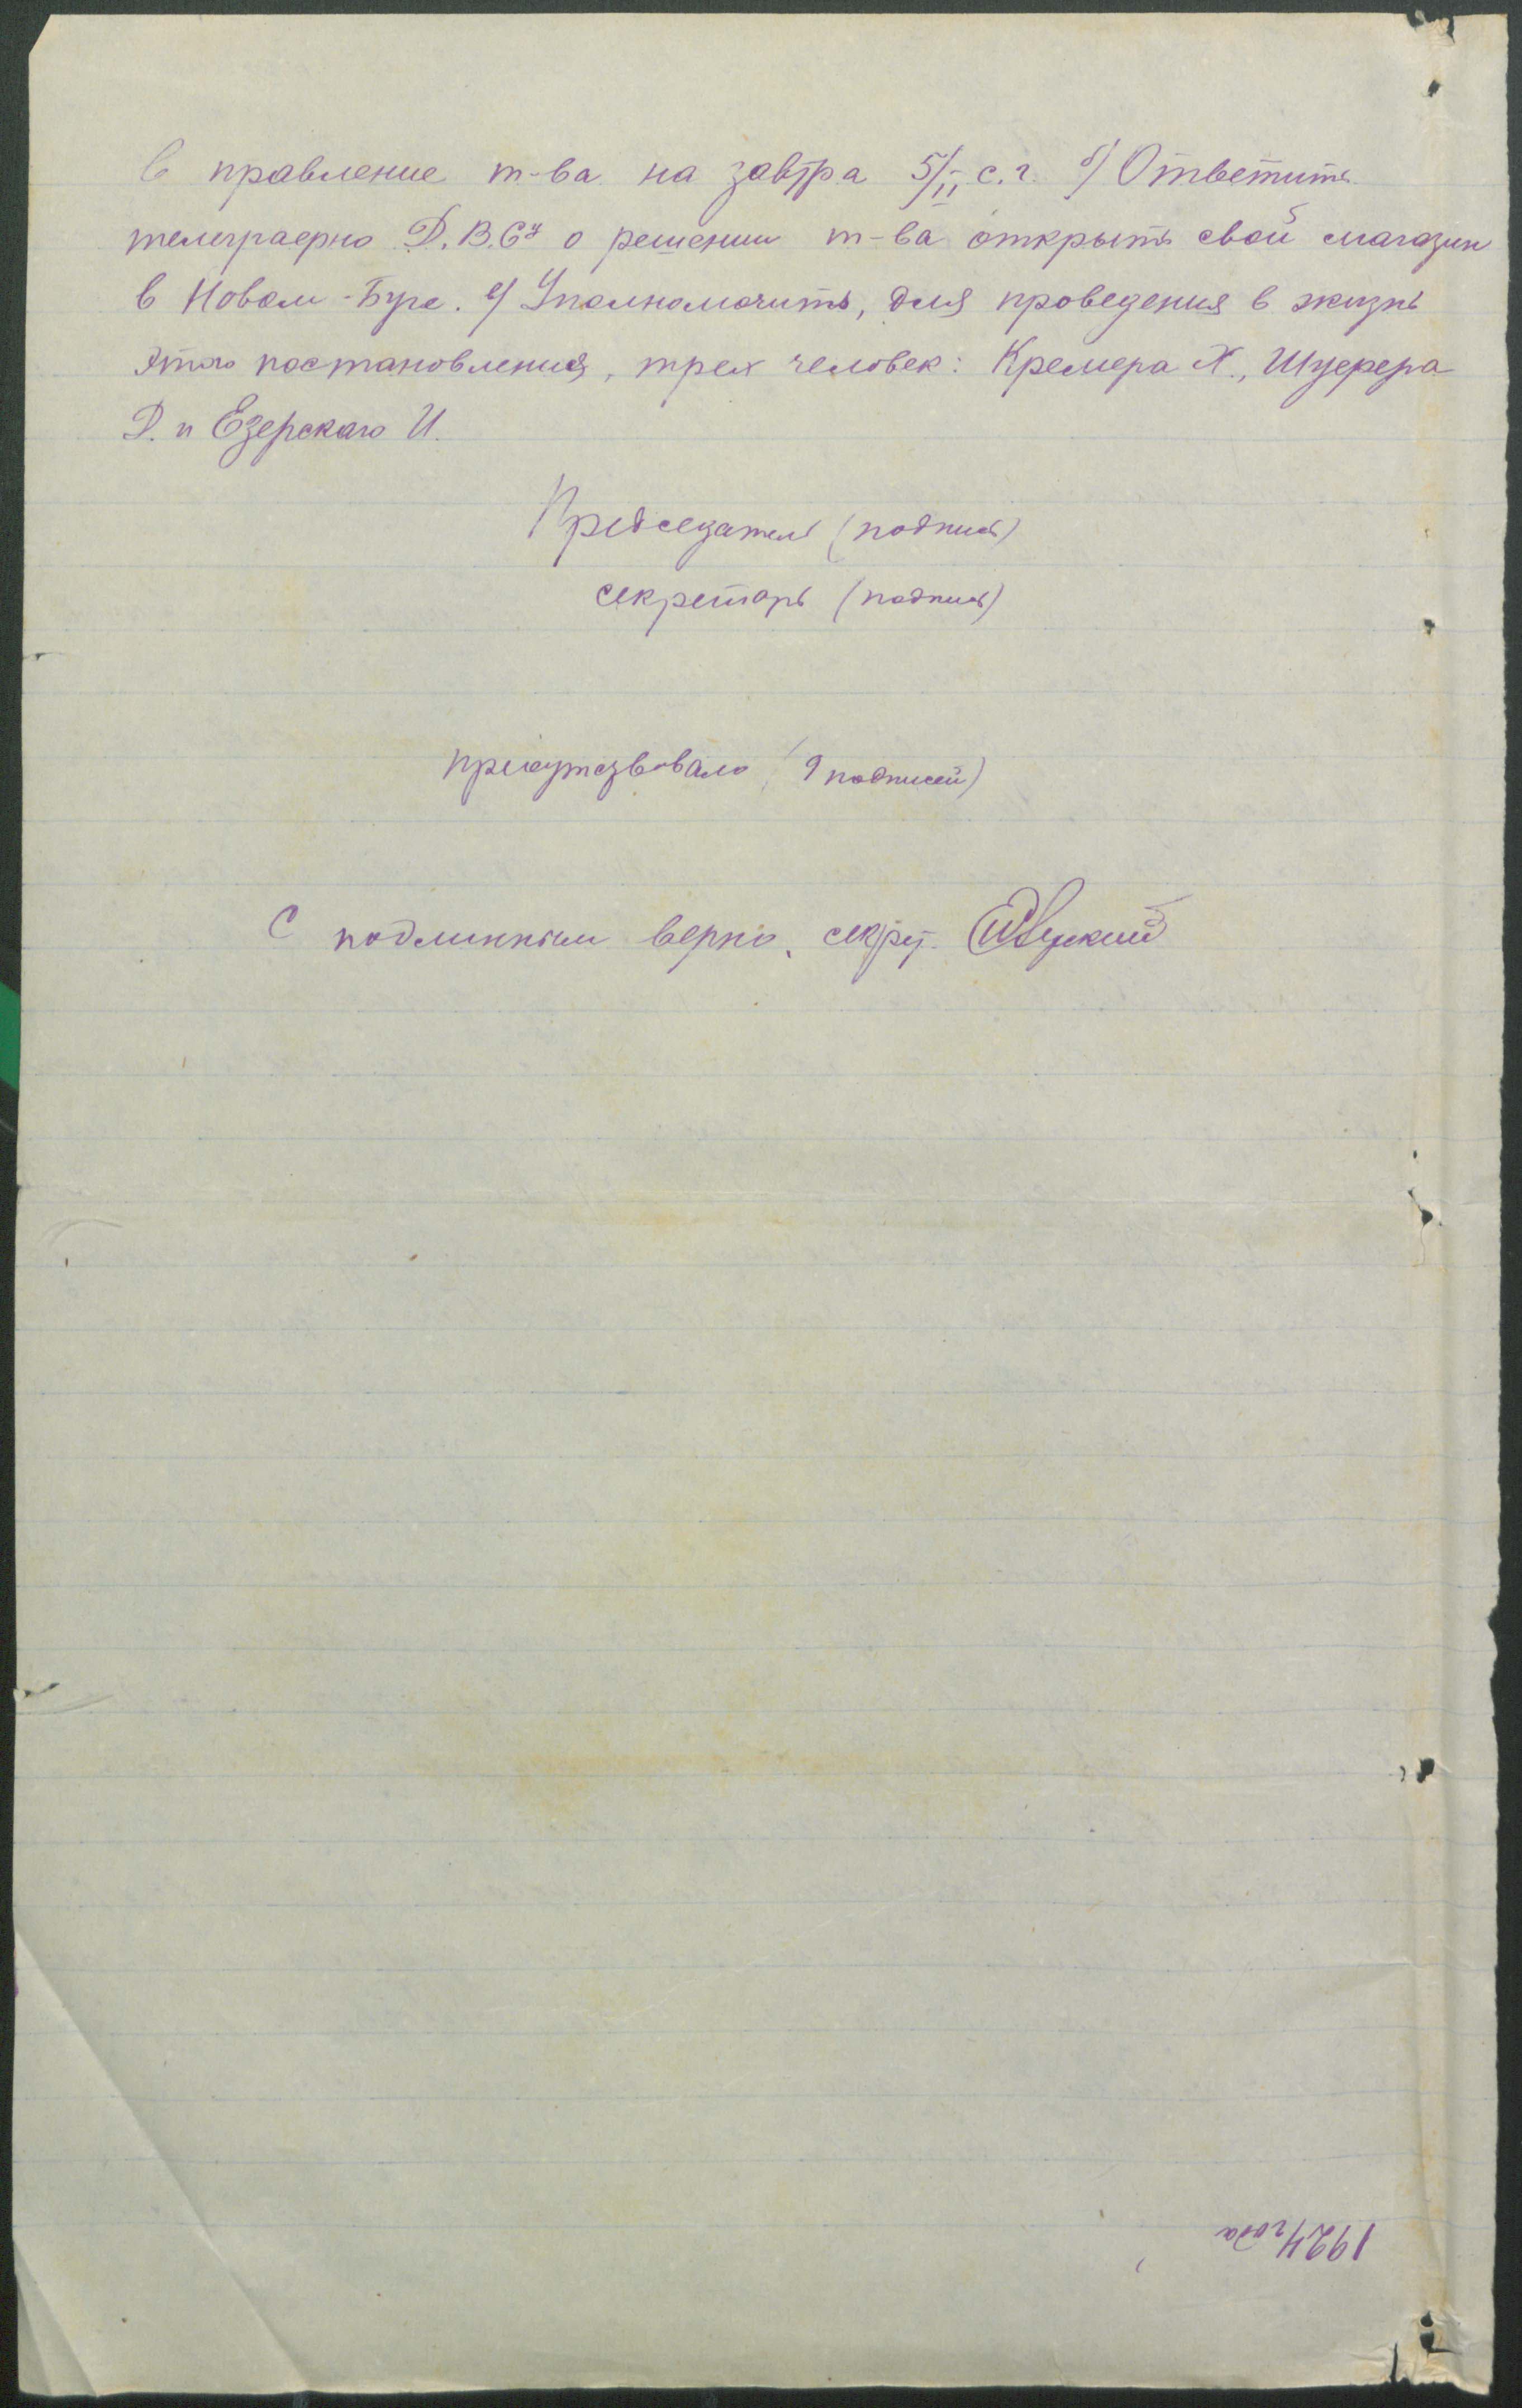 в правление т-ва на завтра 5/II с.г. д/ Ответить
телеграфно Д.В.С? о решении т-ва открыть свой магазин
в Новом-Буге. е/ Уполномочить, для проведения в жизнь
этого постановления, трех человек: Кремера Х., Шуфера
Д. и Езерскаго И.
Председатель (подпись)
секретарь (подпись)
присутствовало (9 подписей)
С подлинным верно, секрет.
1924 года